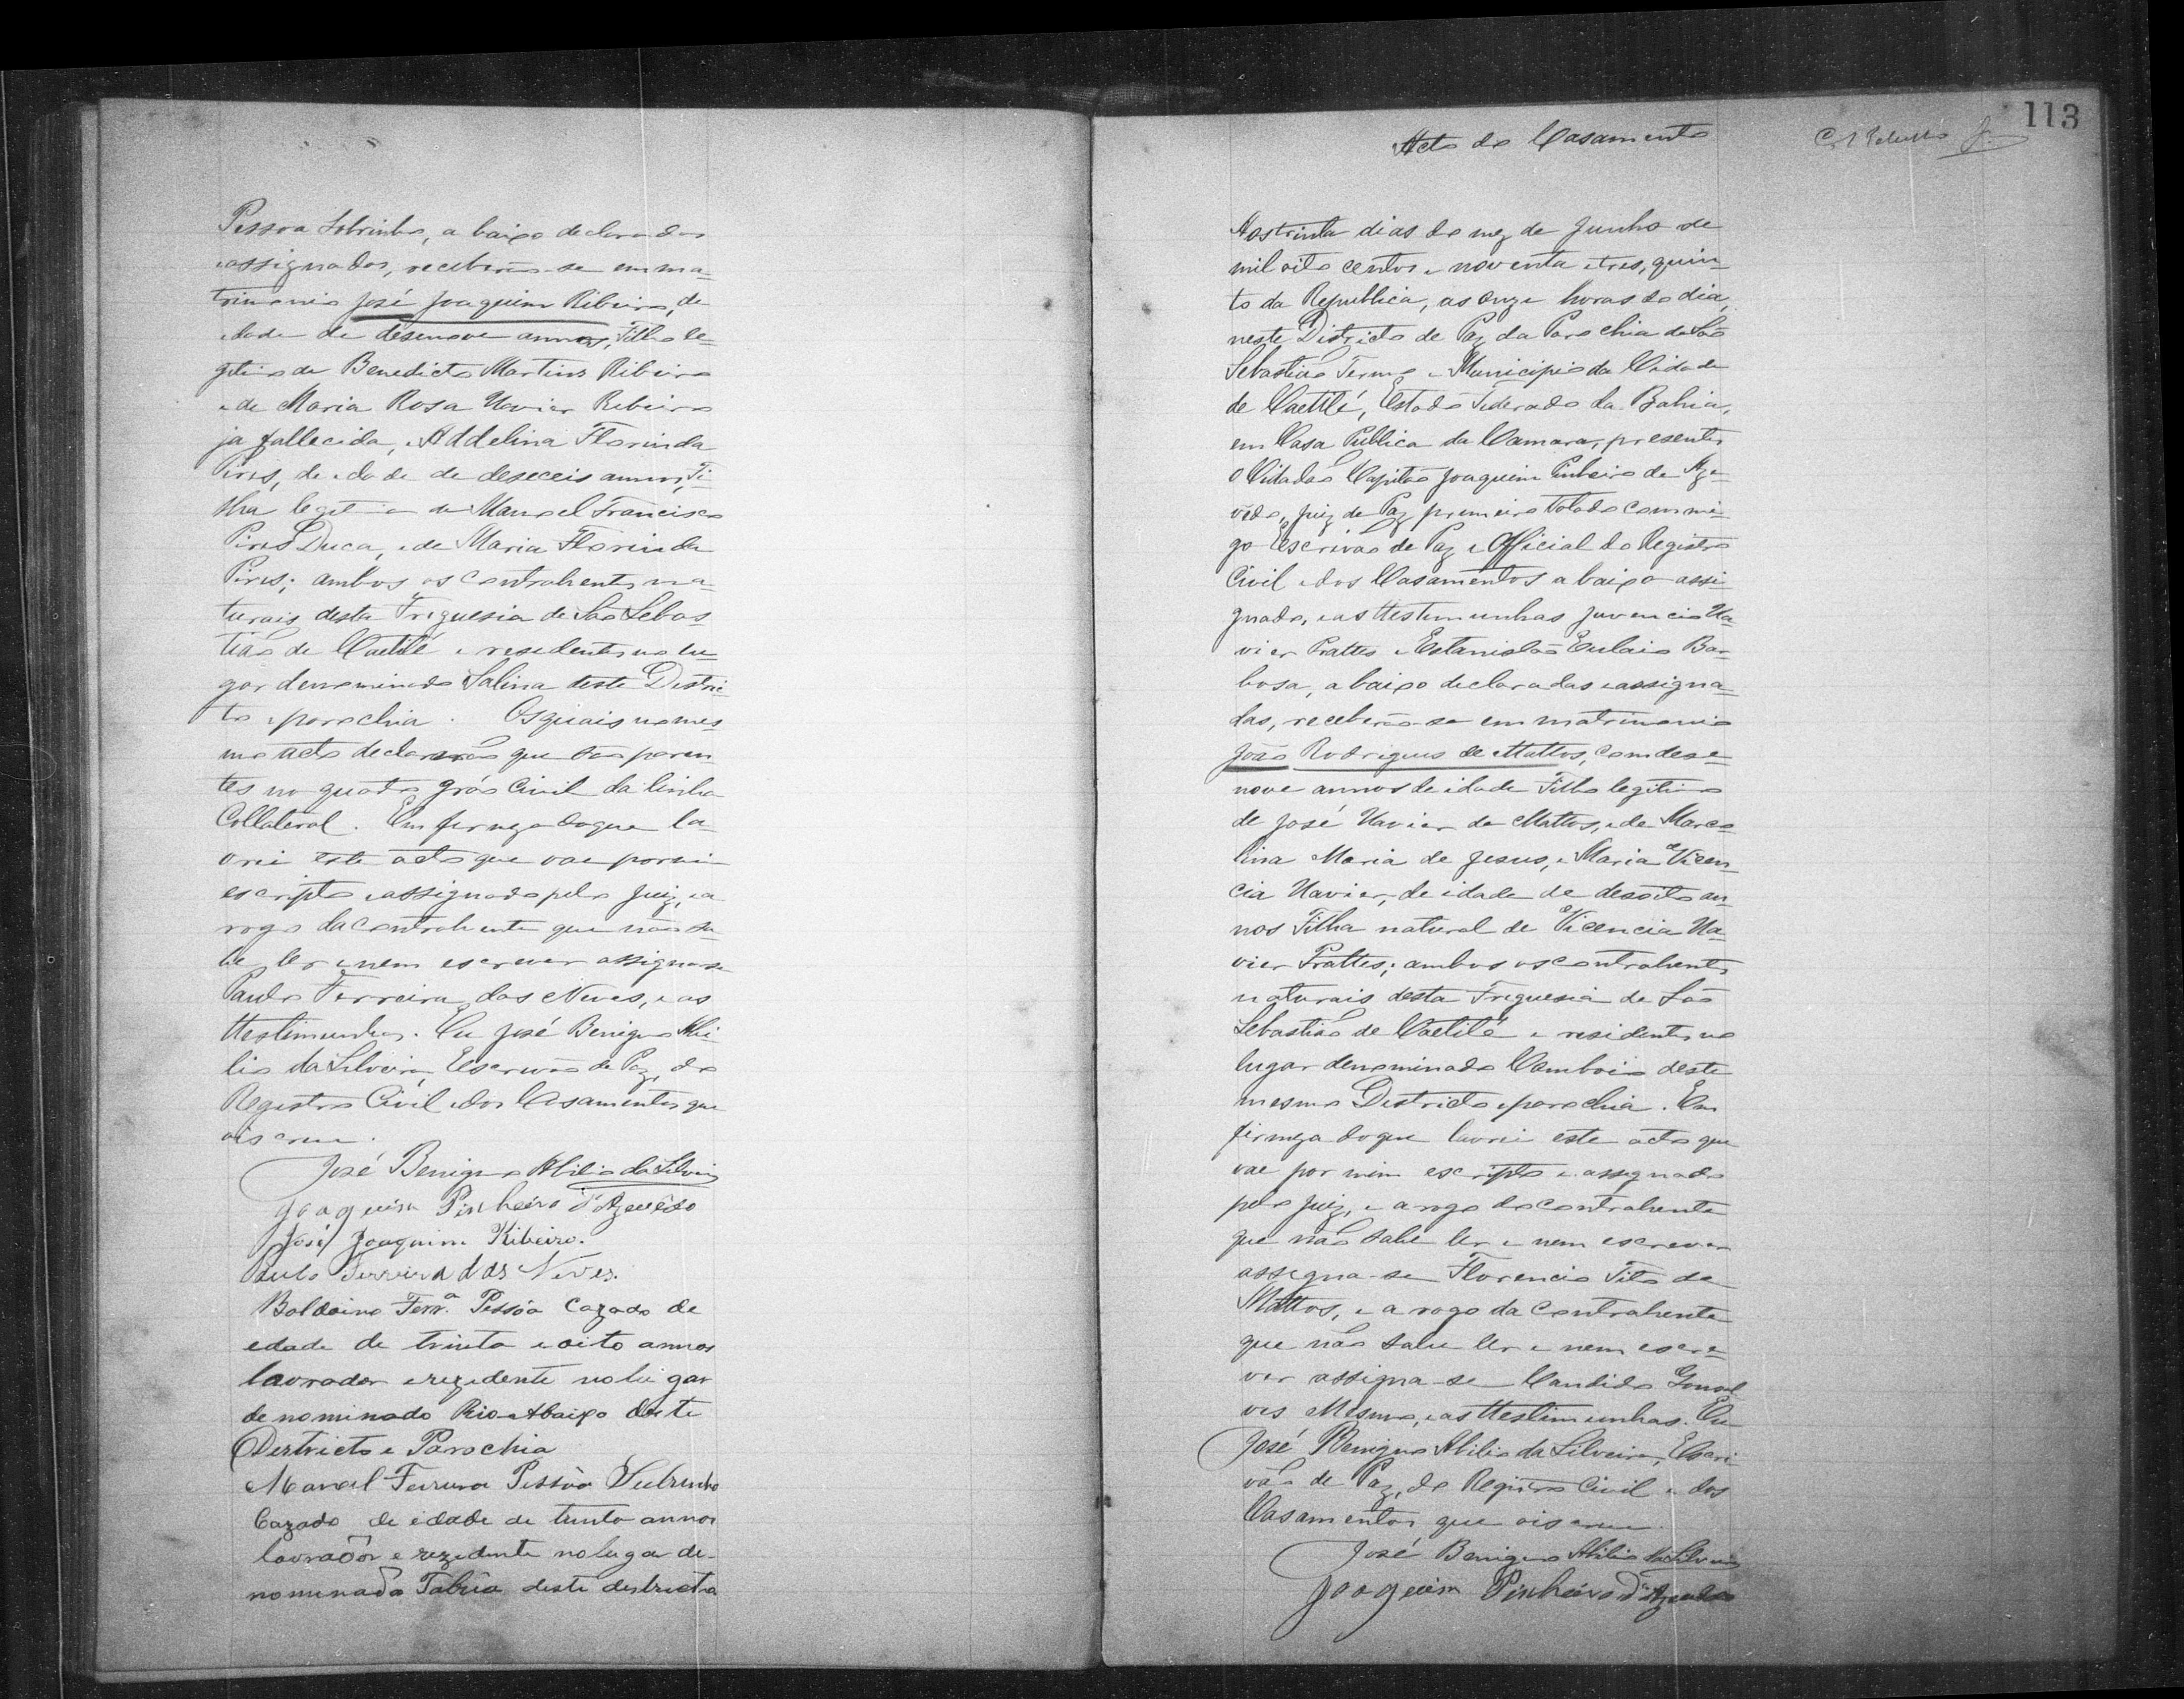 Pessoa Sobrinho, a baixo declarados
e assignados, receberão-se em ma-
trimonio José Joaquim Ribeiro, de
edade de desenove annos, Filho le-
gitimo de Benedicto Martins Ribeiro
e de Maria Rosa Xavier Ribeiro
ja fallecida, e Addelina Florinda
Pires, de edade de deseceis annos, Fi-
lha legitima de Manoel Francisco
Pires Duca, e de Maria Florinda
Pires; ambos os contrahentes na-
turais desta Freguesia de São Sebas
tião de Caetité e residentes no lu-
gar denominado Salina deste Distric-
to e parochia. Os quais no mes
mo acto declararão que são paren-
tes no quarto gráo Civil da linha
Collateral. Em firmeza do que la-
vrei este acto que vae por mim
escripto e assignado pelo Juiz, e a
rogo da contrahente que não sa-
be ler e nem escrever assigna-se
Paulo Ferreira das Neves, e as
ttestimunhas. Eu José Benigno Abi-
lio da Silveira, Escrivão de Paz, do
Registro Civil e dos Casamentos que
o iscrevi.
José Benigno Abilio da Silveira
Joaquim Pinheiro d'Azevêdo
José Joaquim Ribeiro.
Paulo Ferreira das Neves.
Baldoino Ferr.ª Pessôa Cazado de
edade de trinta e oito annos
lavrador e rezidente no lugar
denominado Rio-Abaixo deste
Destricto e Parochia
Manoel Ferreira Pessôa Subrinho
Cazado de idade de trinta annos
lavradôr e rezidente no lugar de-
nominado deste destricto
113
Acto de Casamento
Aos trinta dias do mez de Junho de
mil oito centos e noventa e tres, quin-
to da Republica, as onze horas do dia,
neste Districto de Paz da Parochia de São
Sebastião Termo e Municipio da Cidade
de Caettité, Estado Federado da Bahia,
em Casa Publica da Camara, presentes
o Cidadão Capitão Joaquim Pinheiro de Aze-
vedo, Juiz de Paz primeiro Votado commi-
go Escrivão de Paz e Official do Registro
Civil e dos Casamentos a baixo assi-
gnado, e as ttestimunhas Juvencio Xa-
vier Prattes e Estanisláo Eulaio Bar-
bosa, a baixo declaradas e assigna-
das, receberão-se em matrimonio
João Rodrigues de Mattos, com dese-
nove annos de idade Filho legitimo
de José Xavier de Mattos, e de Marco-
lina Maria de Jesus, e Maria Vicen-
cia Xavier, de idade de desoito an-
nos Filha natural de Vicencia Xa-
vier Prattes; ambos os contrahentes
naturais desta Freguesia de São
Sebastião de Caetité e residentes no
lugar denominado Camboio deste
mesmo Districto e parochia. Em
firmeza do que lavrei este acto que
vae por mim escripto e assignado
pelo Juiz, e a rogo do contrahente
que não sabe ler e nem escrever
assigna-se Florencio Tito de
Mattos, e a rogo da contrahente
que não sabe ler e nem escre-
ver assigna-se Candido Gonsal
ves Mesmo, e as ttestimunhas. Eu
José Benigno Abilio da Silveira, Escri-
vão de Paz, do Registro Civil e dos
Casamentos que o iscrevi.
José Benigno Abilio da Silveira
Joaquim Pinheiro d'Azevedo